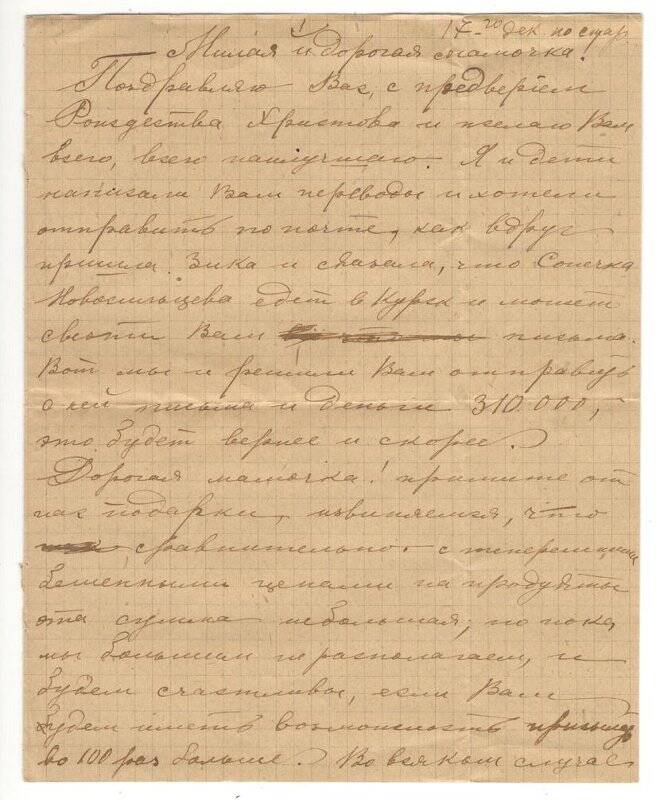 17-го дек по стар
Милая и дорогая мамочка!
Поздравляю Вас, с предверіем
Рождества Христова и желаю Вам
всего, всего наилучшаго. Я и дети
написали Вам переводы и хотели
отправить по почте, как вдруг
пришла Зика и сказала, что Сонечка
Новосильцева едет в Курск и может
свезти Вам письма.
Вот мы и решили Вам отправить
с ней письма и деньги 310.000,
это будет вернее и скорее.
Дорогая мамочка! примите от
нас подарки, извиняемся, что
сравнительно с теперешними
бешенными ценами на продукты
эта сумма небольшая, но пока
мы большим не располагаем, и
будем счастливы, если Вам
будем иметь возможность прислать
во 100 раз больше. Во всяком случае